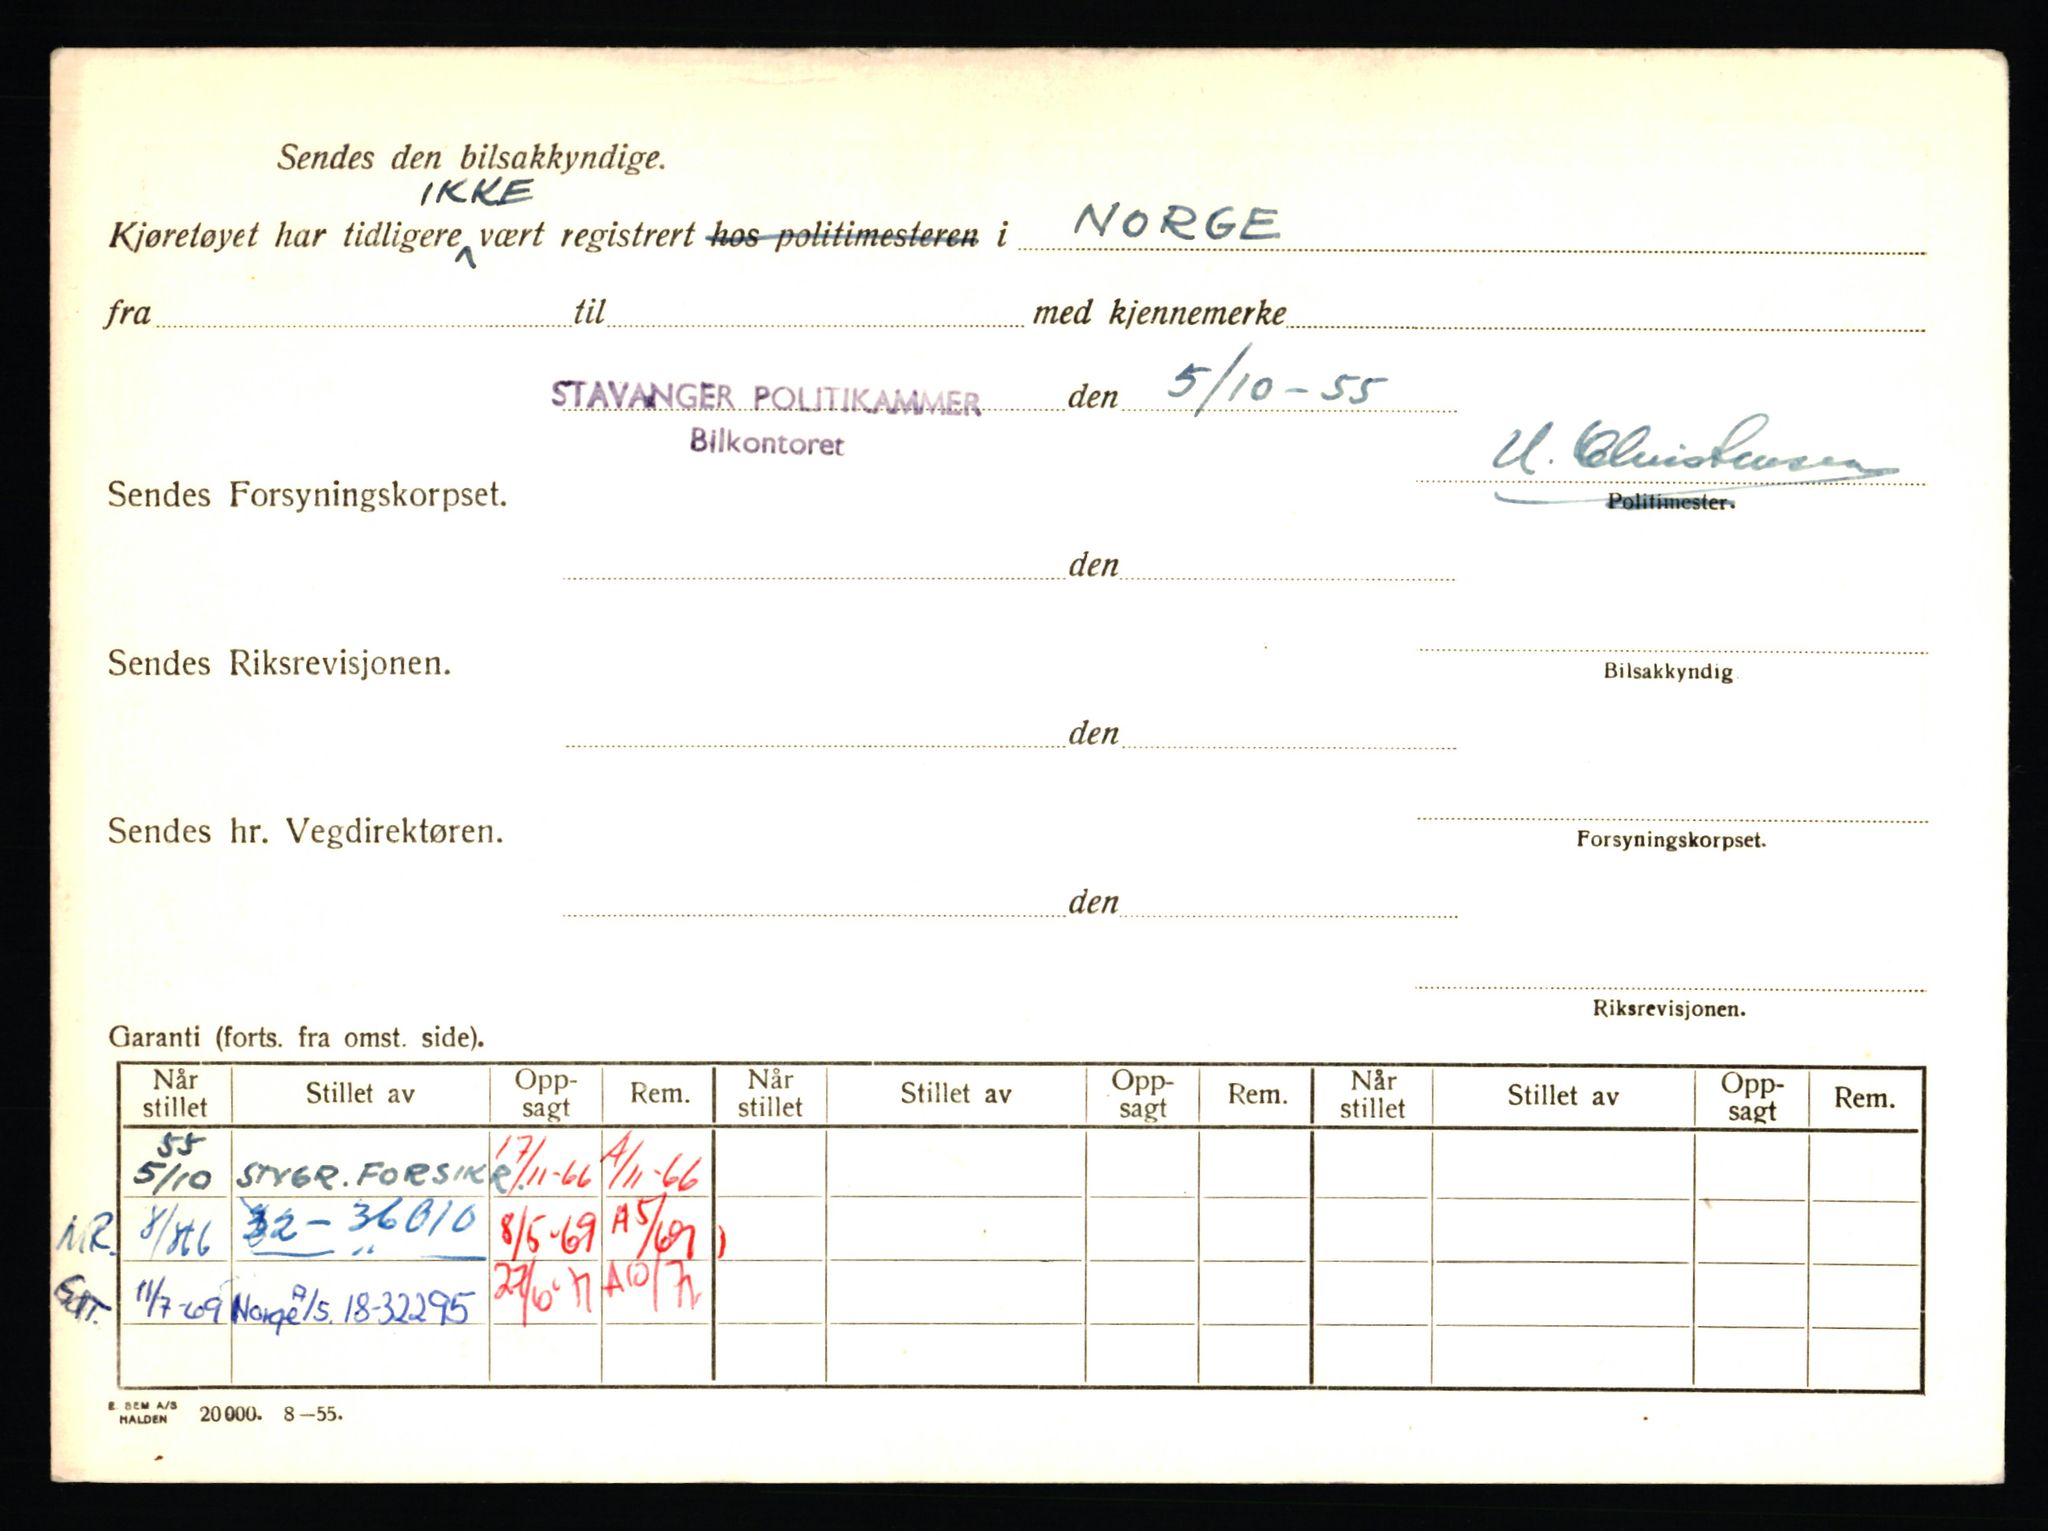 Sendes den bilsakkyndige.
IKKE
Kjøretøyet har tidligere ^ vært registrert hos politimesteren i NORGE
fra til med kjennemerke
STAVANGER POLITIKAMMER den 5/10 - 55
Bilkontoret
U. Christensen
Sendes Forsyningskorpset.
Politimester.
den
Sendes Riksrevisjonen.
Bilsakkyndig
den
Sendes hr. Vegdirektøren.
Forsyningskorpset.
den
Riksrevisjonen.
Garanti (forts. fra omst. side).
Når stillet Stillet av Opp-sagt Rem. Når stillet Stillet av Opp-sagt Rem. Når stillet Stillet av Opp-sagt Rem.
55
5/10 STVGR. FORSIKR. 17/11-66 A/11-66
MR. 32 - 36010 8/5-69 A5/69
11/7-69 Norge A/S. 18-32295
E. SEM A/S
HALDEN 20000. 8-55.